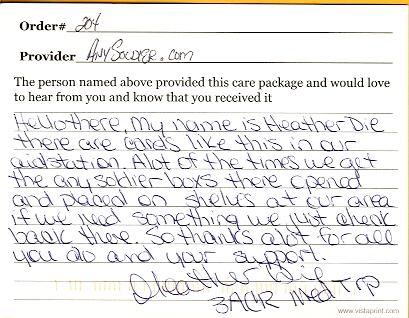 Order# 204
Provider AnySoldier.com
The person named above provided this care package and would love
to hear from you and know that you received it
Hello there, My name is Heather Die
there are cards like this in our
aidstation. Alot of the times we get
the anysoldier boxs there opened
and placed on shelves at our area
if we need something we just check
back there. So thanks alot for all
you do and your support.
Heather Die
3ACR Med Trp
www.vistaprint.com